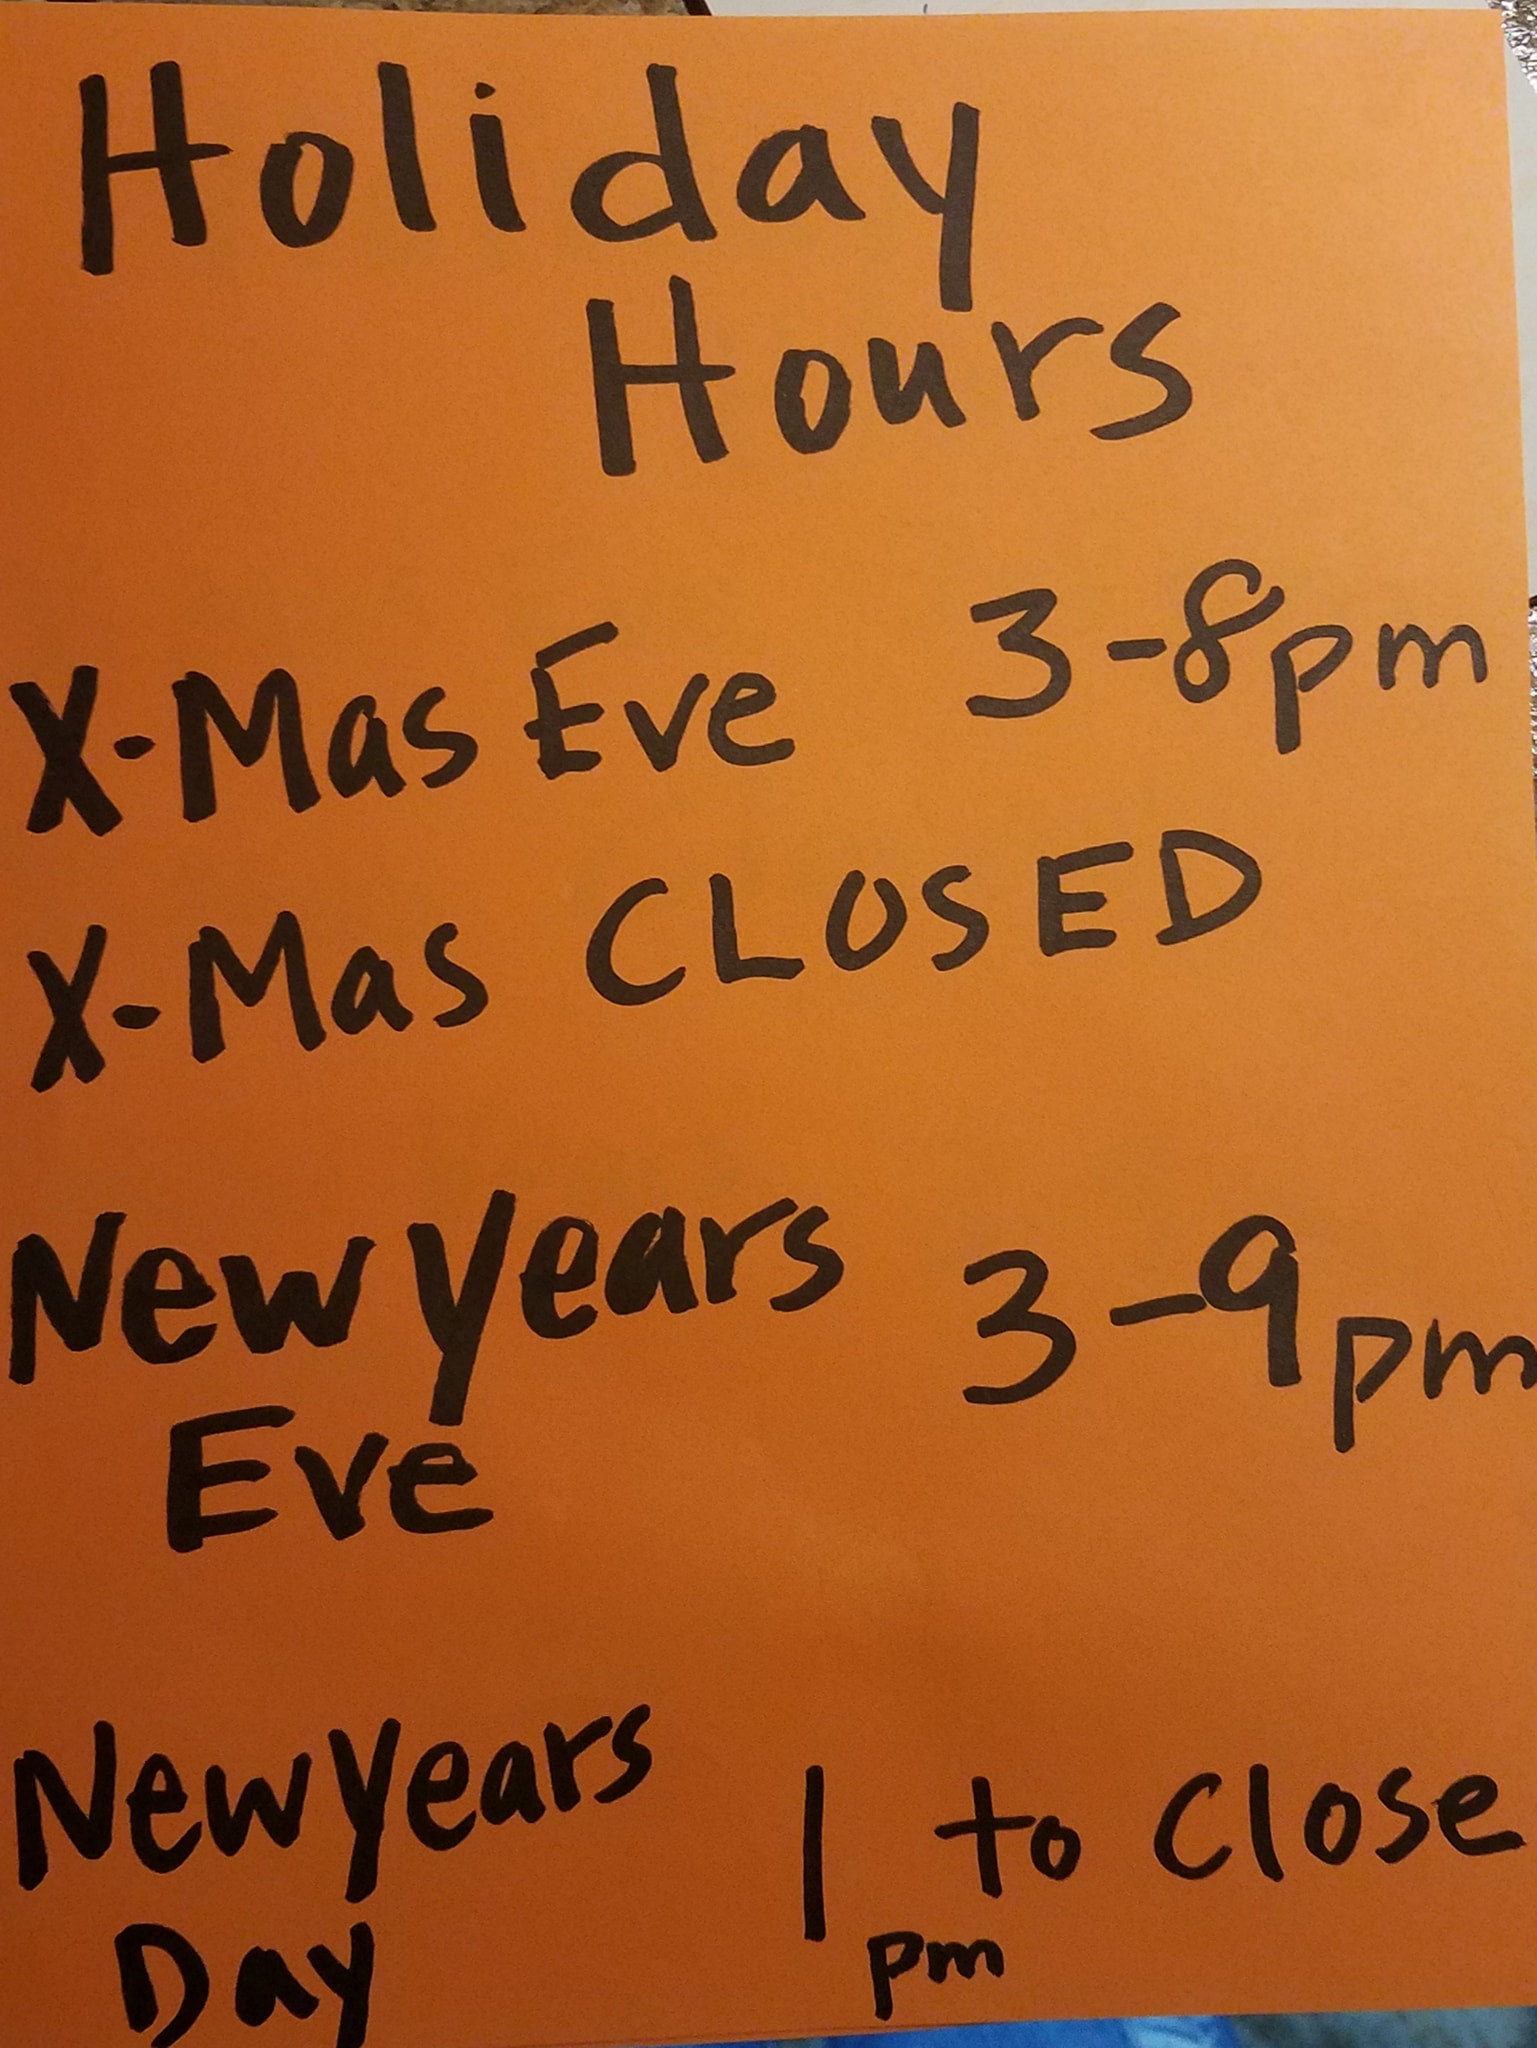 Holiday
Hours
X-Mas Eve 3-8pm
X-Mas CLOSED
New Years 3-9pm
Eve
New Years 1 to Close
Day pm